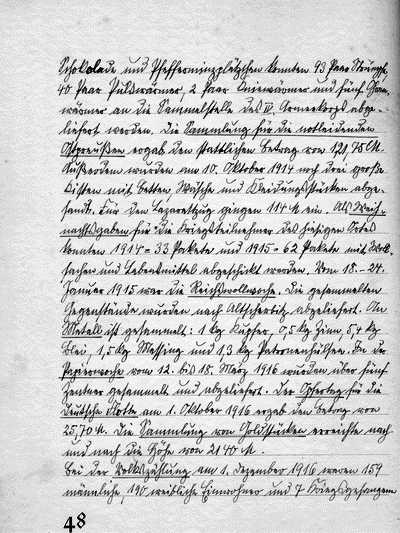 Schokolade und Pfefferminzplätzchen konnten 93 Paar Strümpfe,
40 Paar Pulswärmer, 2 Paar Kniewärmer und fünf
wärmer an die Sammelstelle des IV. Armeekorps abge-
liefert werden. Die Sammlung für die notleidenden
Ostpreußen ergab den stattlichen Betrag von 121,75 M.
Außerdem wurden am 10. Oktober 1914 noch drei große
Kisten mit Betten, Wäsche und Kleidungsstücken abge-
sandt. Für den Lazarettzug gingen 114 M ein. Als Weih-
nachtsgaben für die Kriegsteilnehmer des hiesigen Ortes
konnten 1914 = 33 Pakete und 1915 = 62 Pakete mit Woll-
sachen und Lebensmittel abgeschickt werden. Vom 18. - 24.
Januar 1915 war die Reichswollwoche. Die gesammelten
Gegenstände wurden nach Altscherbitz abgeliefert. An
Metall ist gesammelt: 1 kg Kupfer, 0,5 kg Zinn, 5,4 kg
Blei, 1,5 kg Messing und 1,3 kg Patronenhülsen. In der
Papierwoche vom 12. bis 18. März 1916 wurden über fünf
Zentner gesammelt und abgeliefert. Der Opfertag für die
Deutsche Flotte am 1. Oktober 1916 ergab den Betrag von
25,70 M. Die Sammlung von Goldstücken erreichte nach
und nach die Höhe von 2140 M.
Bei der Volkszählung am 1. Dezember 1916 waren 159
männliche, 190 weibliche Einwohner und 7 Kriegsgefangene
48